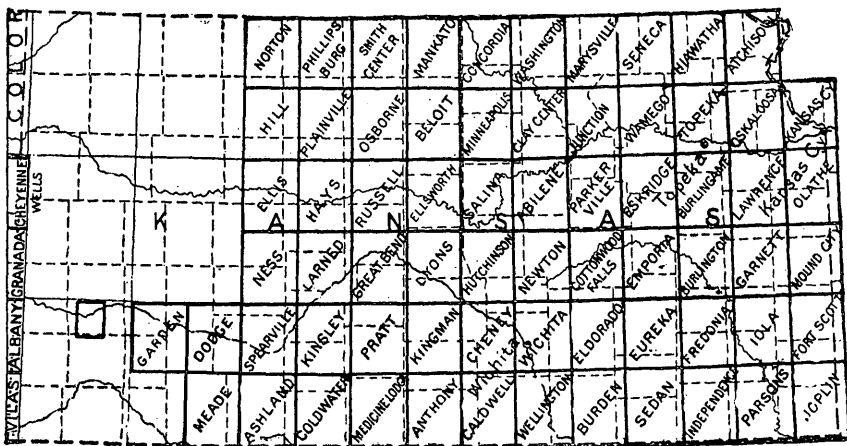 COLOR
NORTON
PHILLIPS
BURG
SMITH
CENTER
MANKATO
CONCORDIA
WASHINGTON
MARYSVILLE
SENECA
HIAWATHA
ATCHISON
HILL
PLAINVILLE
OSBORNE
BELOIT
MINNEAPOLIS
CLAY CENTER
JUNCTION
WAMEGO
TOPEKA
OSKALOOSA
KANSAS CY
CHEYENNE
WELLS
ELLIS
HAYS
RUSSELL
ELLSWORTH
SALINA
ABILENE
PARKER
VILLE
ESKRIDGE
Topeka
BURLINGAME
LAWRENCE
Kansas City
OLATHE
K A N S A S
GRANADA
NESS
LARNED
GREAT BEND
LYONS
HUTCHINSON
NEWTON
COTTONWOOD
FALLS
EMPORIA
BURLINGTON
GARNETT
MOUND CITY
ALBANY
GARDEN
DODGE
SPEARVILLE
KINSLEY
PRATT
KINGMAN
CHENEY
Wichita
WICHITA
ELDORADO
EUREKA
FREDONIA
IOLA
FORT SCOTT
VILAS
MEADE
ASHLAND
COLDWATER
MEDICINE LODGE
ANTHONY
CALDWELL
WELLINGTON
BURDEN
SEDAN
INDEPENDENCE
PARSONS
JOPLIN